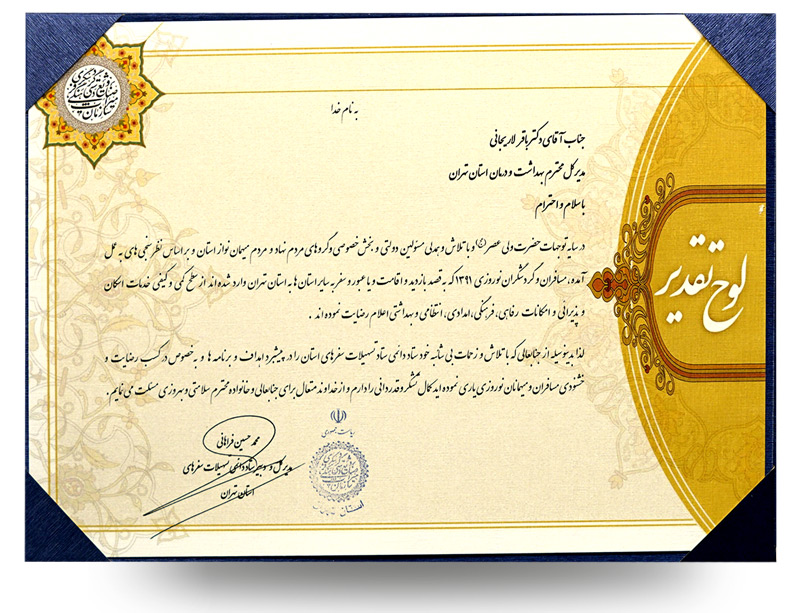 به نام خدا
جناب آقای دکتر باقر لاریجانی
مدیر کل محترم بهداشت و درمان استان تهران
با سلام و احترام
در سایه توجهات حضرت ولی عصر (عج) و با تلاش و همدلی مسئولین دولتی و بخش خصوصی و گروه های مردم نهاد و مردم میهمان نواز استان و بر اساس نظر سنجی های به عمل
آمده، مسافران و گردشگران نوروزی ۱۳۹۱ که به قصد بازدید و اقامت و یا عبور و سفر به سایر استان ها به استان تهران وارد شده اند از سطح کمی و کیفی خدمات اسکان
و پذیرائی و امکانات رفاهی، فرهنگی، امدادی، انتظامی و بهداشتی اعلام رضایت نموده اند .
لذا بدینوسیله از جنابعالی که با تلاش و زحمات بی شائبه خود ستاد دائمی ستاد تسهیلات سفرهای استان را در پیشبرد اهداف و برنامه ها و به خصوص در کسب رضایت و
خشنودی مسافران و میهمانان نوروزی یاری نموده اید کمال تشکر و قدردانی را دارم و از خداوند متعال برای جنابعالی و خانواده محترم سلامتی و بهروزی مسئلت می نمایم.
محمد حسین فراهانی
مدیر کل و دبیر ستاد دائمی تسهیلات سفرهای
استان تهران
ریاست جمهوری
لوح تقدیر